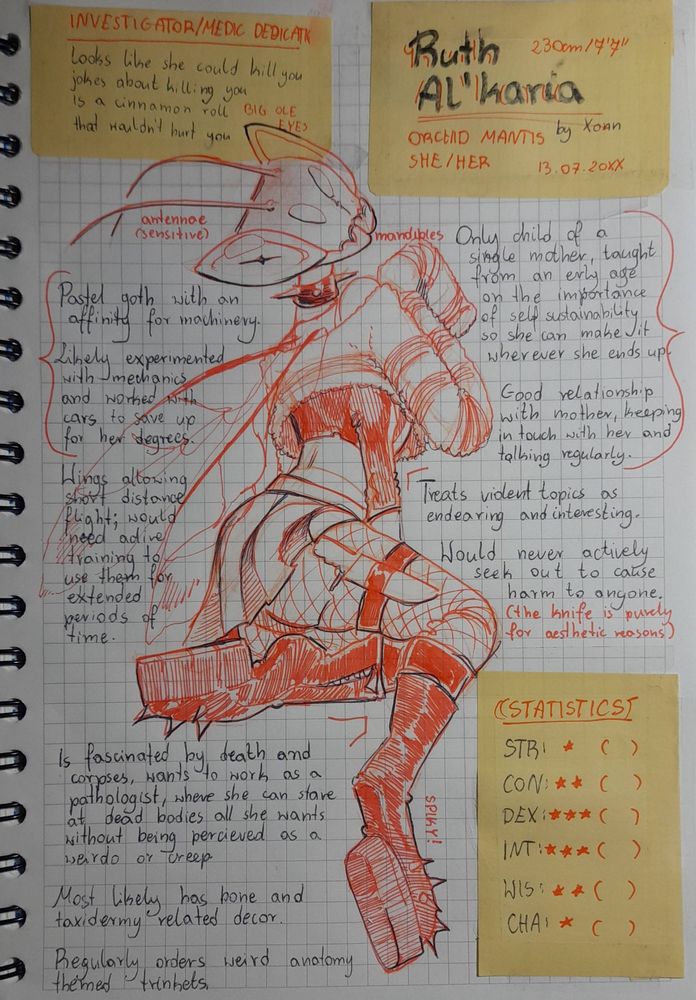 INVESTIGATOR/MEDIC DEDICATN
Looks like she could kill you
jokes about killing you
Is a cinnamon roll
that wouldn't hurt you
BIG OLE
EYES
Ruth
Al''karia
230cm/7'7"
ORCHID MANTIS
by Xoan
SHE/HER
13.07.20XX
antennae
(sensitive)
mandibles
Pastel goth with an
affinity for machinery.
Likely experimented
with mechanics
and worked with
cars to save up
for her degrees.
Wings allowing
short distance
flight; would
need adive
training to
use them for
extended
periods of
time.
Only child of a
single mother, taught
from an erly age
on the importance
of self sustainability
so she can make it
wherever she ends up.
Good relationship
with mother, keeping
in touch with her and
talking regularly.
Treats violent topics as
endearing and interesting.
Would never actively
seek out to cause
harm to anyone.
(the knife is purely
for aesthetic reasons)
Is fascinated by death and
corpses, wants to work as a
pathologist, where she can stare
at dead bodies all she wants
without being percieved as a
weirdo or creep
Most likely has bone and
taxidermy related decor.
Regularly orders weird anatomy
themed trinkets.
SPIKY!
STATISTICS
STR: ★ ( )
CON: ★★ ( )
DEX: ★★★ ( )
INT: ★★★ ( )
WIS: ★★ ( )
CHA: ★ ( )